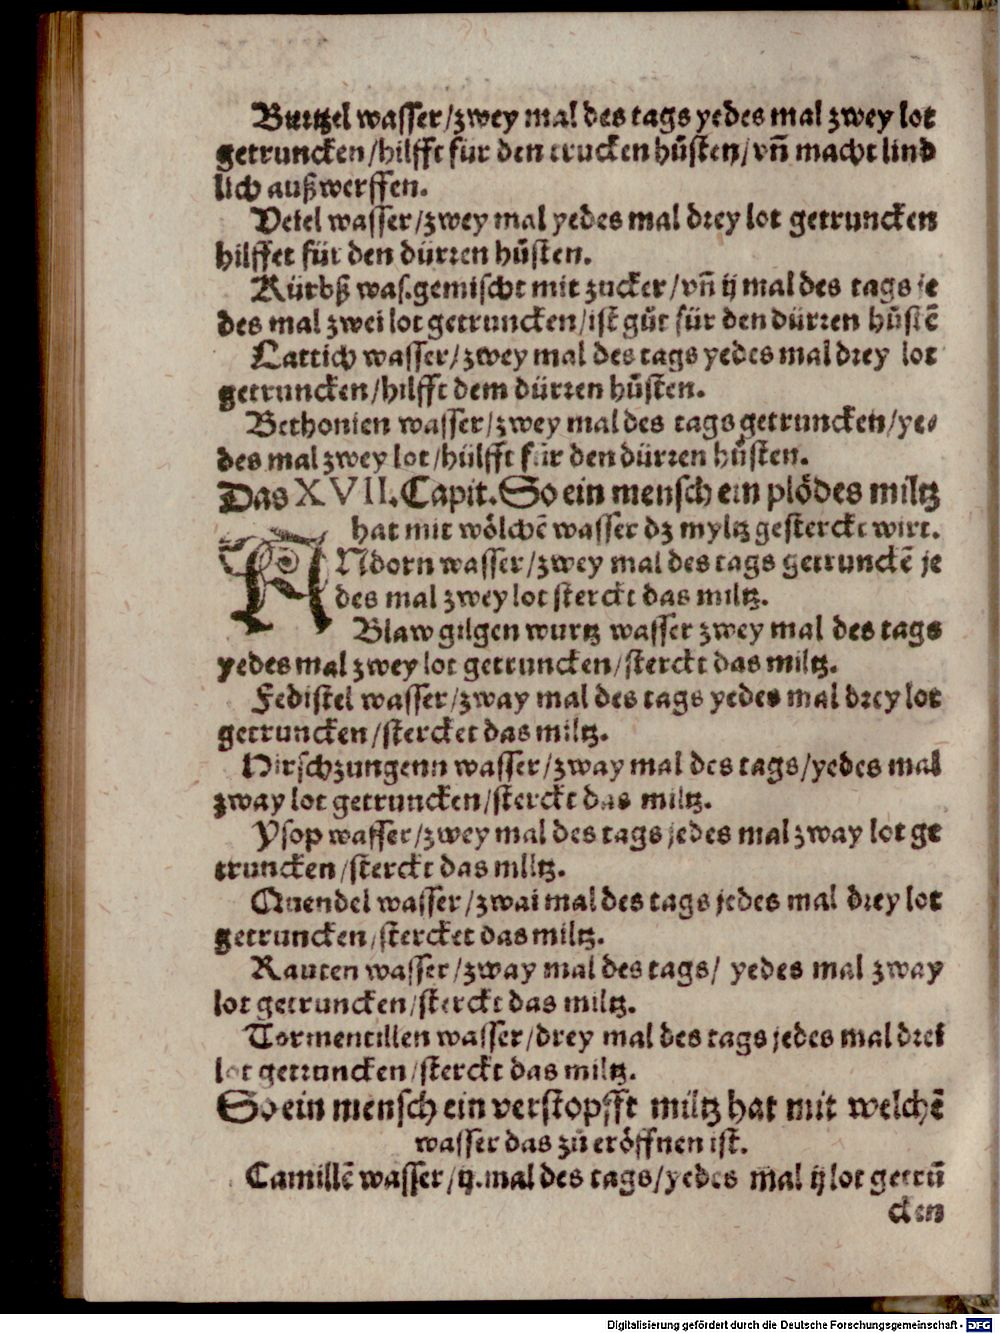 Burtzel wasser/zwey mal des tags yedes mal zwey lot
getruncken/hilfft für den trucken hůsten/vñ macht lind
lich außwerffen.
Veiel wasser/zwey mal yedes mal drey lot getruncken
hilffet für den dürren hůsten.
Kürbß was.gemischt mit zucker/vñ ij mal des tags je
des mal zwei lot getruncken/ist gůt für den dürren hůstẽ
Lattich wasser/zwey mal des tags yedes mal drey lot
getruncken/hilfft dem dürren hůsten.
Bethonien wasser/zwey mal des tags getruncken/ye⸗
des mal zwey lot/hülfft für den dürren hůsten.
Das XVII.Capit.So ein mensch ein plödes miltz
hat mit wölchẽ wasser dz myltz gesterckt wirt.
ANdorn wasser/zwey mal des tags getrunckẽ je
des mal zwey lot sterckt das miltz.
Blaw gilgen wurtz wasser zwey mal des tags
yedes mal zwey lot getruncken/sterckt das miltz.
Fedistel wasser/zway mal des tags yedes mal drey lot
getruncken/stercket das miltz.
Hirschzungenn wasser/zway mal des tags/yedes mal
zway lot getruncken/sterckt das miltz.
Ysop wasser/zwey mal des tags jedes mal zway lot ge
truncken/sterckt das miltz.
Quendel wasser/zwai mal des tags jedes mal drey lot
getruncken/stercket das miltz.
Rauten wasser/zway mal des tags/ yedes mal zway
lot getruncken/sterckt das miltz.
Tormentillen wasser/drey mal des tags jedes mal drei
lot getruncken/sterckt das miltz.
So ein mensch ein verstopfft miltz hat mit welchẽ
wasser das zů eröffnen ist.
Camillẽ wasser/ij.mal des tags/yedes mal ij lot getrũ
cken
Digitalisierung gefördert durch die Deutsche Forschungsgemeinschaft - DFG